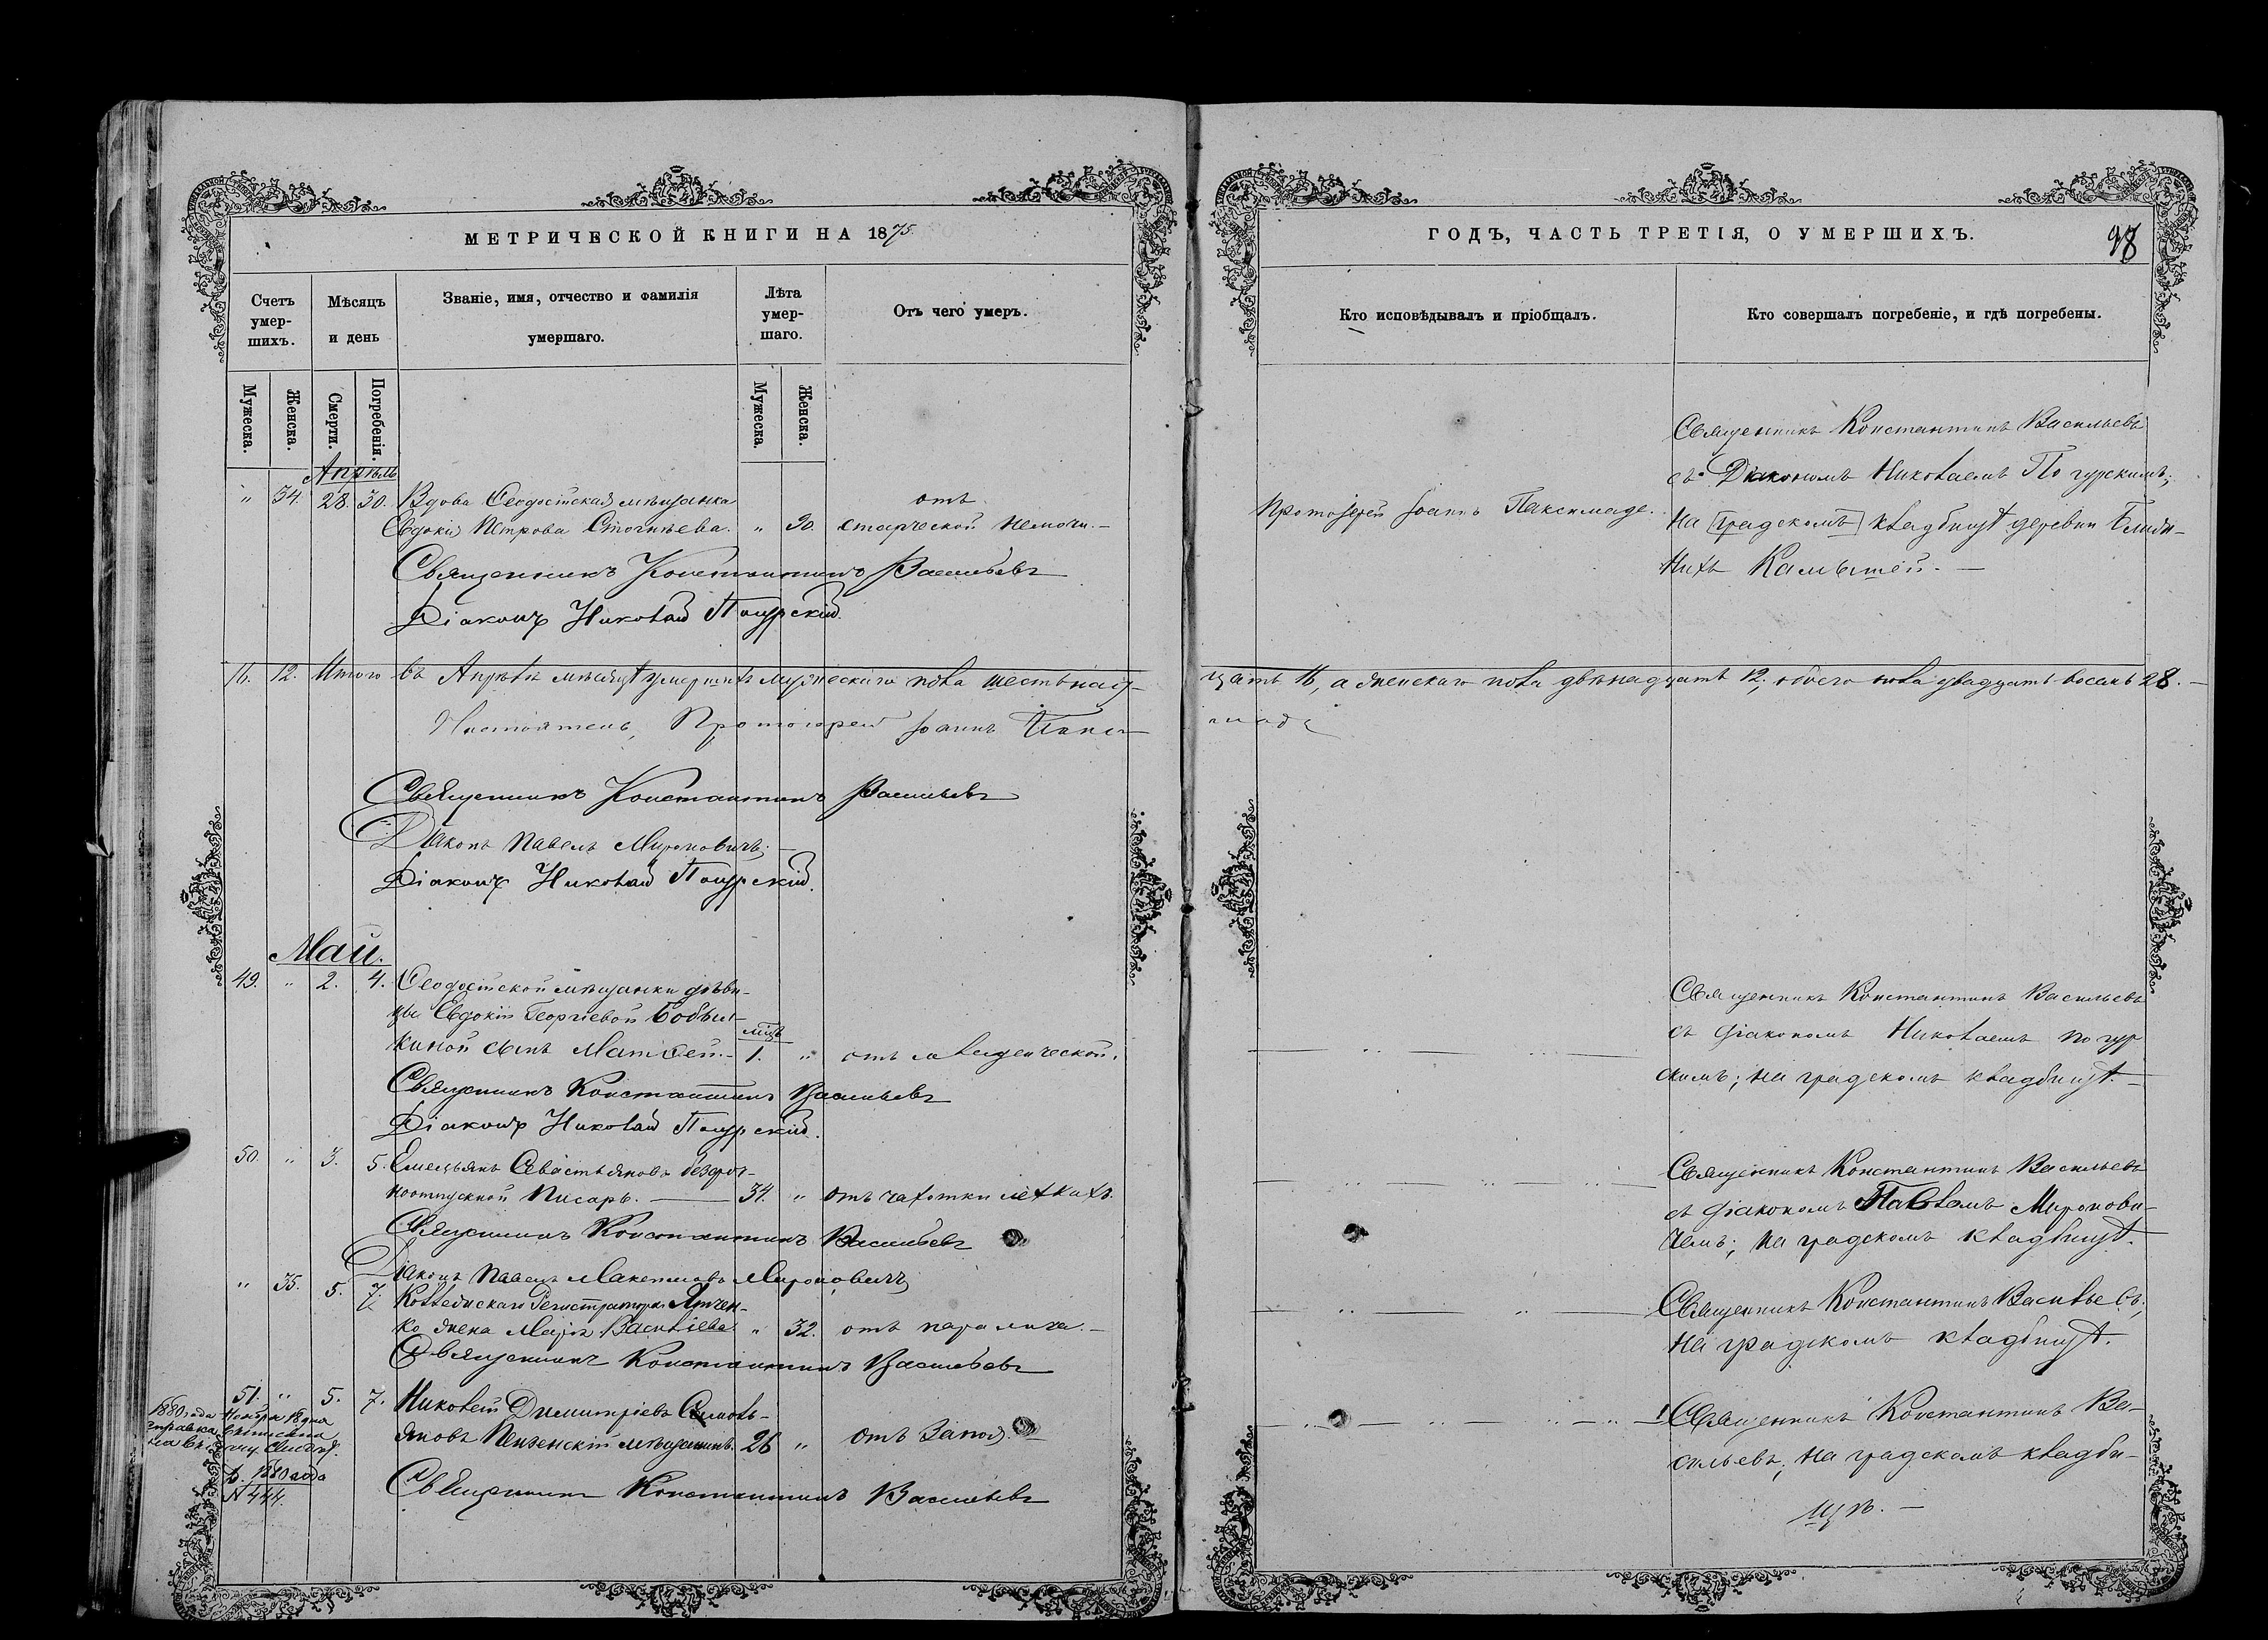 МЕТРИЧЕСКОЙ КНИГИ НА 1875
Счетъ умер-шихъ.
Мѣсяцъ и день
Званіе, имя, отчество и фамилія умершаго.
Лѣта умер-шаго.
Отъ чего умеръ.
Мужеска.
Женска.
Смерти.
Погребенія.
Мужеска.
Женска.
Апрѣль
" 34. 28. 30. Вдова Ѳеодосійская мѣщанка отъ
Евдокія Петрова " 90. старческой немочи.—
Священникъ Константинъ Васильевъ
Діаконъ Николай Погурскій.
16. 12. Итого въ Апрѣлѣ мѣсяцѣ умершихъ мужескаго пола шестьнад-
Настоятель, Протоіерей Іоаннъ Пакси-
Священникъ Константинъ Васильевъ
Діаконъ Павелъ Мироновичъ;
Діаконъ Николай Погурскій.
Май.
49. " 2. 4. Ѳеодосійской мѣщанки дѣви-
цы Евдокіи Георгіевой Бобыл-
мѣц.
киной сынъ Матѳей.— 1. " отъ младенческой.
Священникъ Константинъ Васильевъ
Діаконъ Николай Погурскій.
50. " 3. 5. Емельянъ Севастьяновъ безсроч-
ноотпускной Писарь. — 34. " отъ чахотки легкихъ.
Священникъ Константинъ Васильевъ
Діаконъ Павелъ Мироновичъ
" 35. 5. 7. Коллежскаго Регистратора Ятчен-
ко жена Марія Василіева. " 32. отъ паралича.—
Священникъ Константинъ Васильевъ
51. " 5. 7. Николай Димитріевъ Симоль-
яновъ Пензенскій мѣщанинъ. 26 " отъ запоя.—
Священникъ Константинъ Васильевъ
1880 года Ноября 18 дня
справка
1880 года
N 444.
ГОДЪ, ЧАСТЬ ТРЕТІЯ, О УМЕРШИХЪ.
98
Кто исповѣдывалъ и пріобщалъ.
Кто совершалъ погребеніе, и гдѣ погребены.
Священникъ Константинъ Васильевъ
съ Діакономъ Николаемъ Погурскимъ;
Протоіерей Іоаннъ Паксимаде.
на градскомъ кладбищѣ деревни Ближ-
нихъ Камышей.—
цать 16, а женскаго пола двѣнадцать 12, обоего пола двадцать восемь 28.—
маде
Священникъ Константинъ Васильевъ
съ діакономъ Николаемъ Погур
скимъ; на градскомъ кладбищѣ.—
Священникъ Константинъ Васильевъ
съ діакономъ Павломъ Миронови-
чемъ; на градскомъ кладбищѣ.
Священникъ Константинъ Васильевъ;
на градскомъ кладбищѣ.
Священникъ Константинъ Ва-
сильевъ; на градскомъ кладби-
щѣ.—